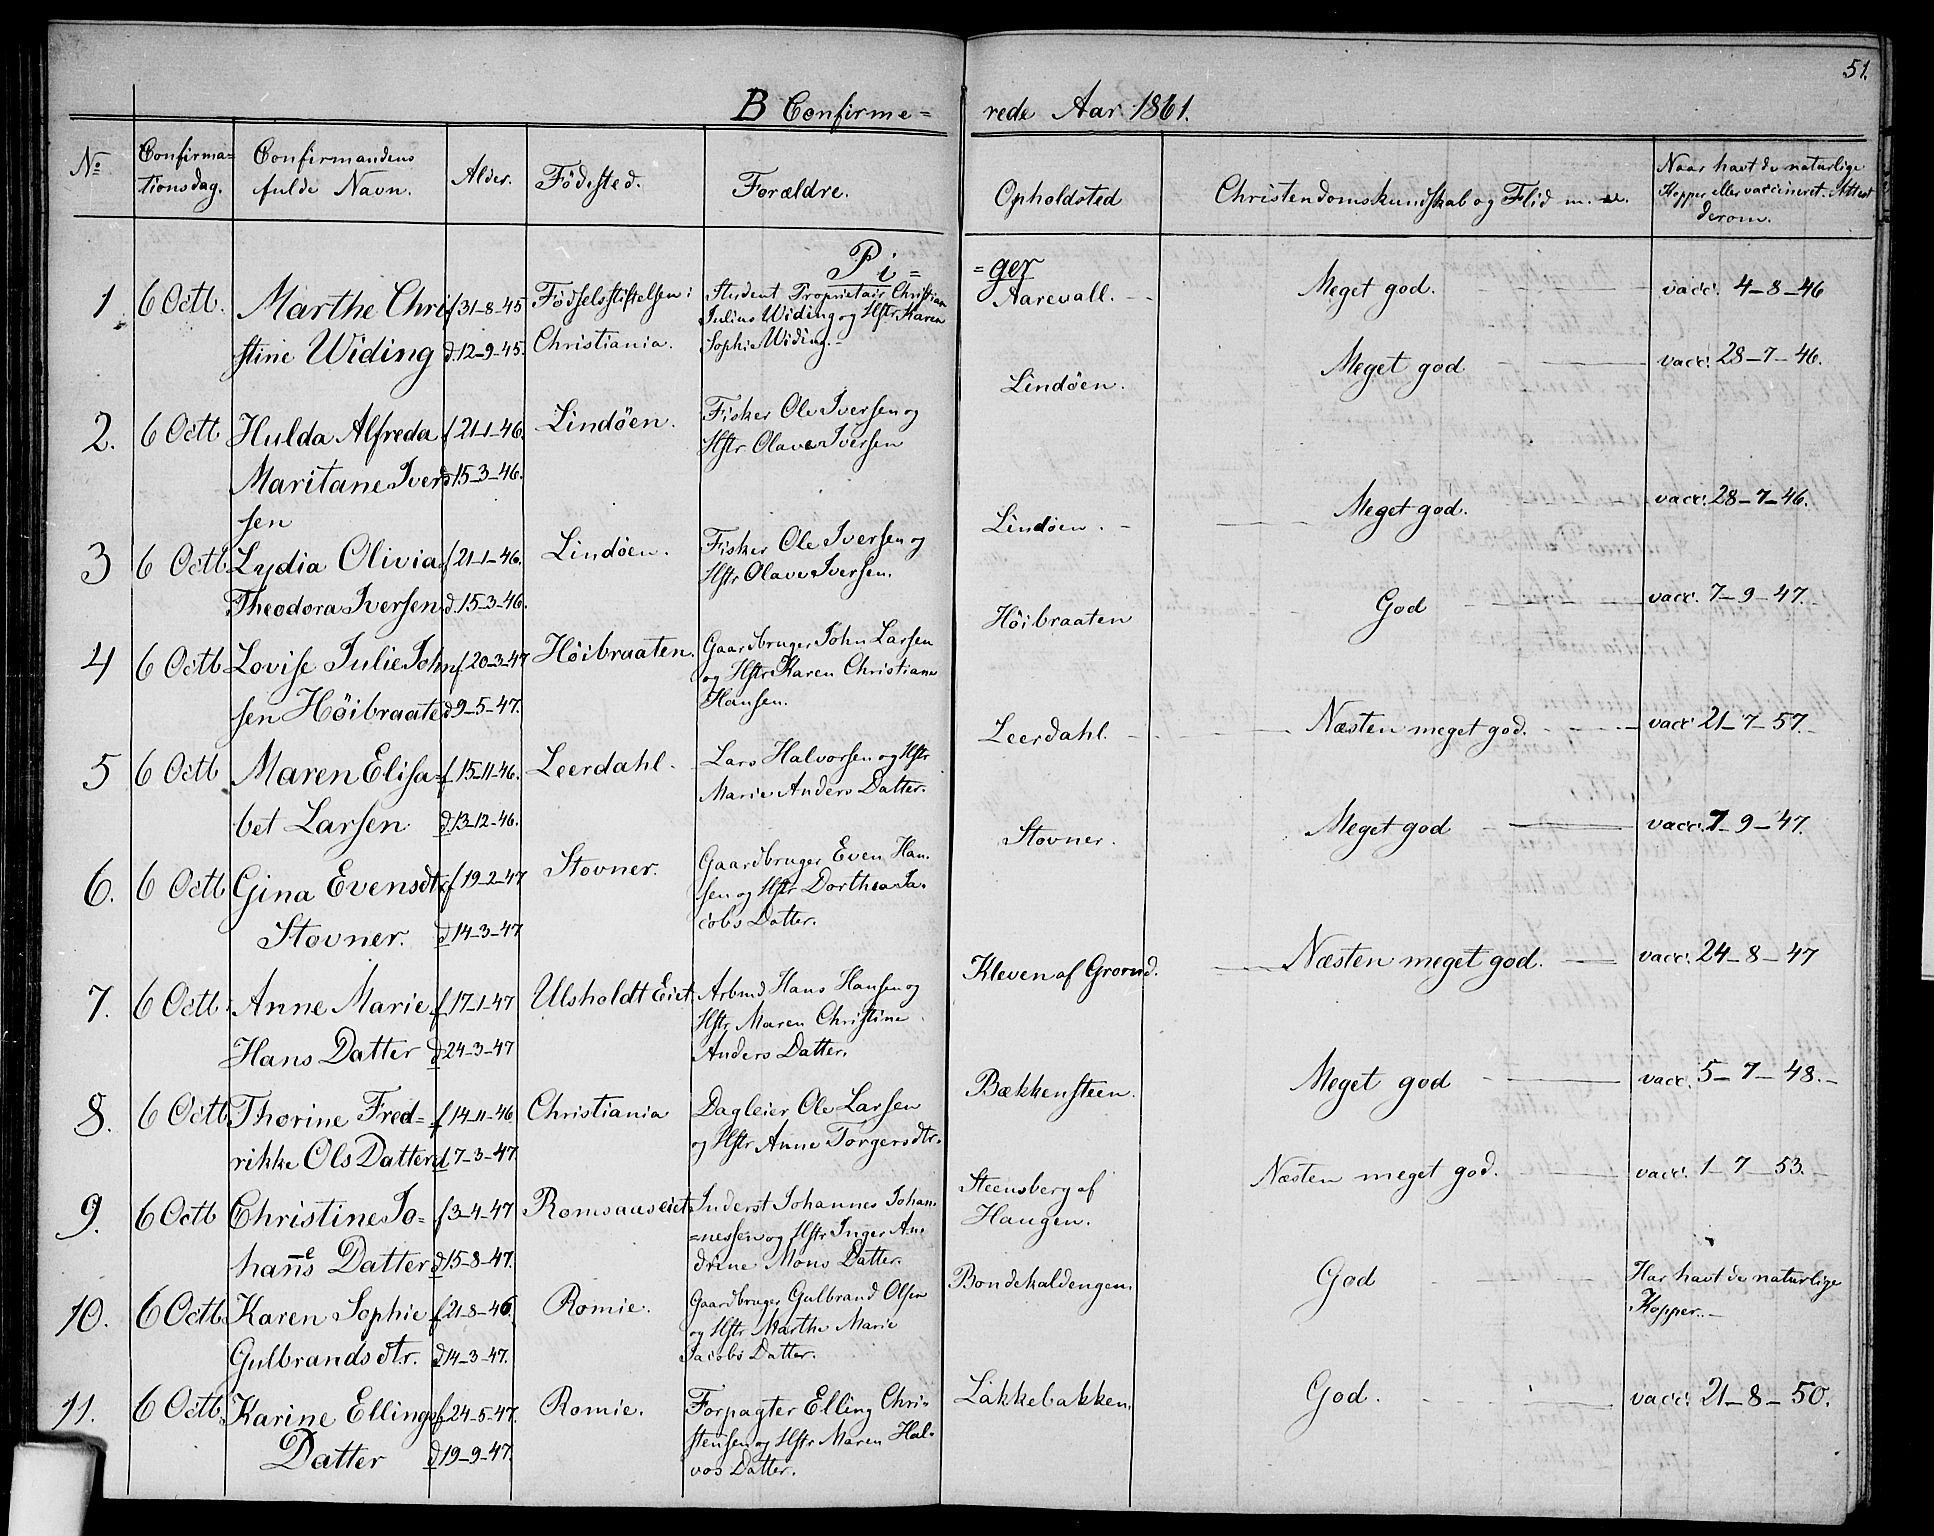 51.
B Confirme=
rede Aar 1861.
No
Confirma=
tionsdag.
Confirmandens
fulde Navn.
Alder.
Födested.
Forældre.
Opholdsted
Christendomskundskab og Flid m. v.
Naar havt de naturlige
Kopper eller vaccineret. Attest
derom.
Pi=
=ger
1 6 Octb. Marthe Chri f 31-8-45 Fødselsstiftelsen i Student Proprietair Christian
stine Widing d. 12-9-45. Christiania. Julius Widing og Hstr Karen
Sophie Widing.-
Aarevall. Meget god. vacc. 4-8-46
2. 6 Octb Hulda Alfreda f 21-1-46. Lindöen. Fisker Ole Iversen og
Maritane Iver d 15-3-46. Hstr Olave Iversen
sen
Lindöen. Meget god vacc. 28-7-46.
3 6 Octb. Lydia Olivia f 21-1-46. Lindöen. Fisker Ole Iversen og
Theodora Iversen d. 15-3-46. Hstr Olave Iversen.
Lindöen. Meget god. vacc. 28-7-46.
4 6 Octb Lovise Julie John f 20-3-47 Höibraaten. Gaardbruger John Larsen
sen Höibraate d 9-5-47. og Hstr Karen Christiane
Hansen.
Höibraaten God vacc. 7-9-47.
5 6 Octb Maren Elisa= f 15-11-46. Leerdahl. Lars Halvorsen og Hstr
bet Larsen d 13-12-46. Marie Anders Datter.
Leerdahl. Næsten meget god. vacc 21-7-57.
6. 6 Octb Gina Evensdtr f 19-2-47 Stovner. Gaardbruger Even Han-
Stovner. d 14-3-47 sen og Hstr Dorthea Ja-
cobs Datter.
Stovner. Meget god vacc. 7-9-47.
7. 6 Octb. Anne Marie f. 17-1-47 Ulsholdt Eiet Arbmd Hans Hansen og
Hans Datter d 24-3-47 Hstr Maren Christine
Anders Datter.
Kleven af Grorud. Næsten meget god. vacc. 24-8-47
8. 6 Octb Thorine Fred= f 14-11-46 Christiania Dagleier Ole Larsen
rikke Ols Datter d 7-3-47 og Hstr Anne Torgersdtr.
Bækkensteen. Meget god vacc. 5-7-48.-
9. 6 Octb Christine Jo= f 3-4-47 Romsaaseiet Inderst Johannes Johan
hans Datter d 15-8-47. =nessen og Hstr Inger An
drine Mons Datter.
Steensberg af
Haugen. Næsten meget god. vacc. 1-7-53.-
10. 6 Octb. Karen Sophie f 21-8-46 Romie. Gaardbruger Gulbrand Olsen
Gulbrandsdtr. d 14-3-47. og Hstr Marthe Marie
Jacobs Datter.
Bondekaldengen. God Har havt de naturlige
Kopper.-
11. 6 Octb. Karine Ellings f 24-5-47. Romie. Forpagter Elling Chri-
Datter d 19-9-47. stensen og Hstr Maren Hal-
vos Datter.
Lakkebakken. God. vacc. 21-8-50.